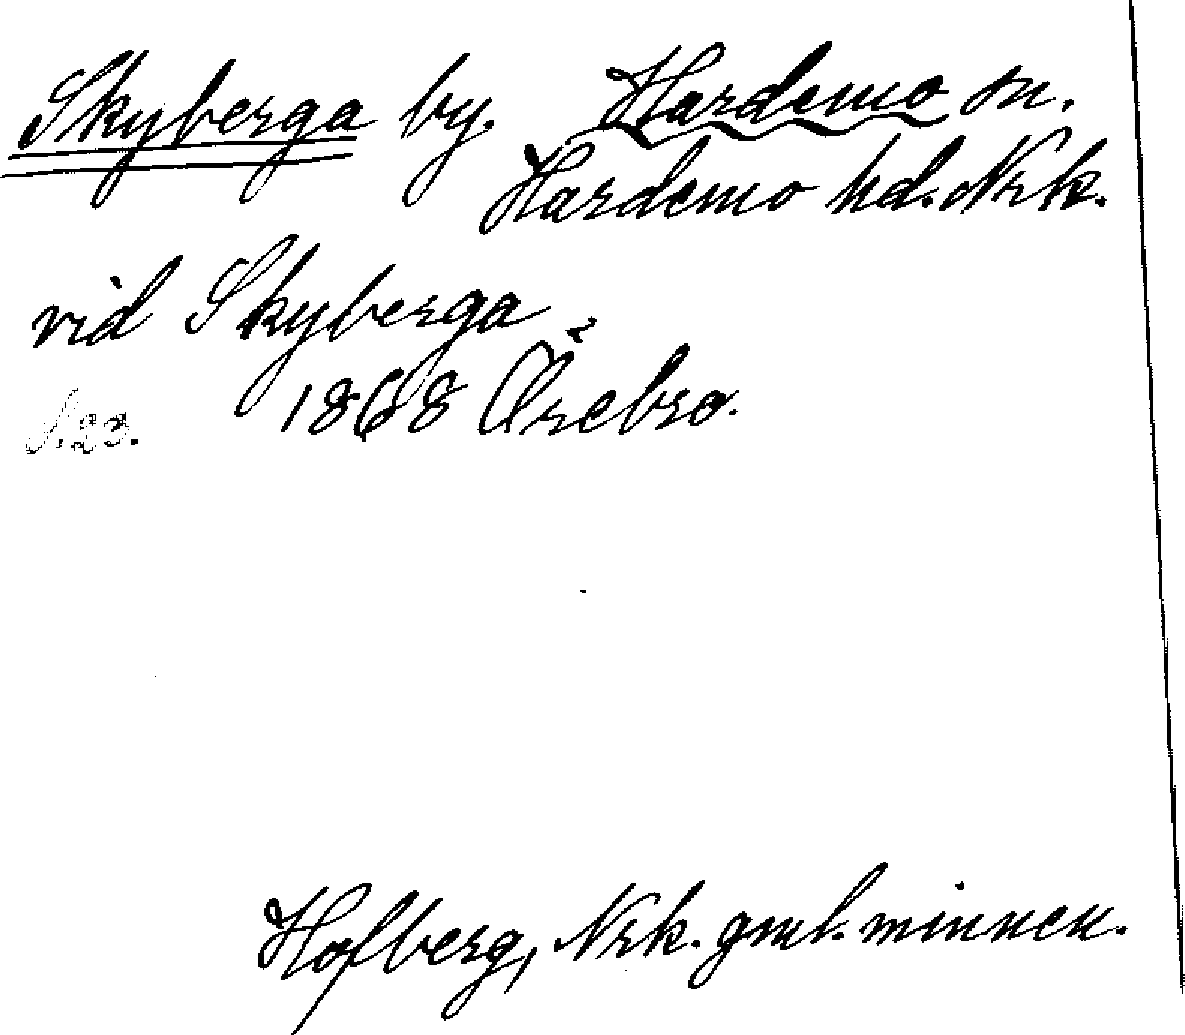 Skyberga by. Hardemo sn.
Hardemo hd. Nrk.
vid Skyberga
1868 Örebro.
S. 23.
Hofberg, Nrk. gml. minnen.